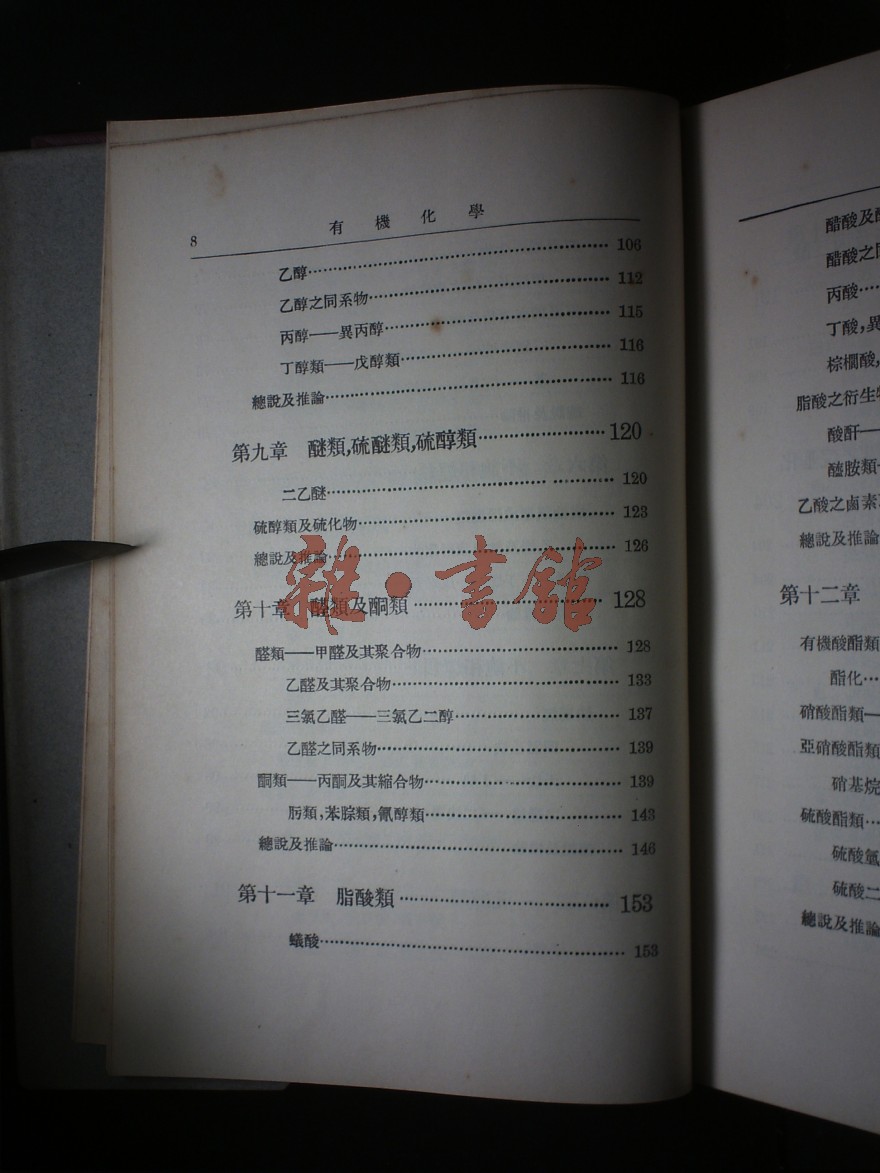 8 有機化學
乙醇 106
乙醇之同系物 112
丙醇——異丙醇 115
丁醇類——戊醇類 116
總說及推論 116
第九章 醚類,硫醚類,硫醇類 120
二乙醚 120
硫醇類及硫化物 123
總說及推論 126
第十章 醛類及酮類 128
醛類——甲醛及其聚合物 128
乙醛及其聚合物 133
三氯乙醛——三氯乙二醇 137
乙醛之同系物 139
酮類——丙酮及其縮合物 139
肟類,苯腙類,氰醇類 143
總說及推論 146
第十一章 脂酸類 153
蟻酸 153
雜·書館
醋酸及
醋酸之
丙酸
丁酸,異
棕櫚酸,
脂酸之衍生物
酸酐—
醯胺類
乙酸之鹵素
總說及推論
第十二章
有機酸酯類
酯化
硝酸酯類—
亞硝酸酯類
硝基烷
硫酸酯類
硫酸氫
硫酸二
總說及推論